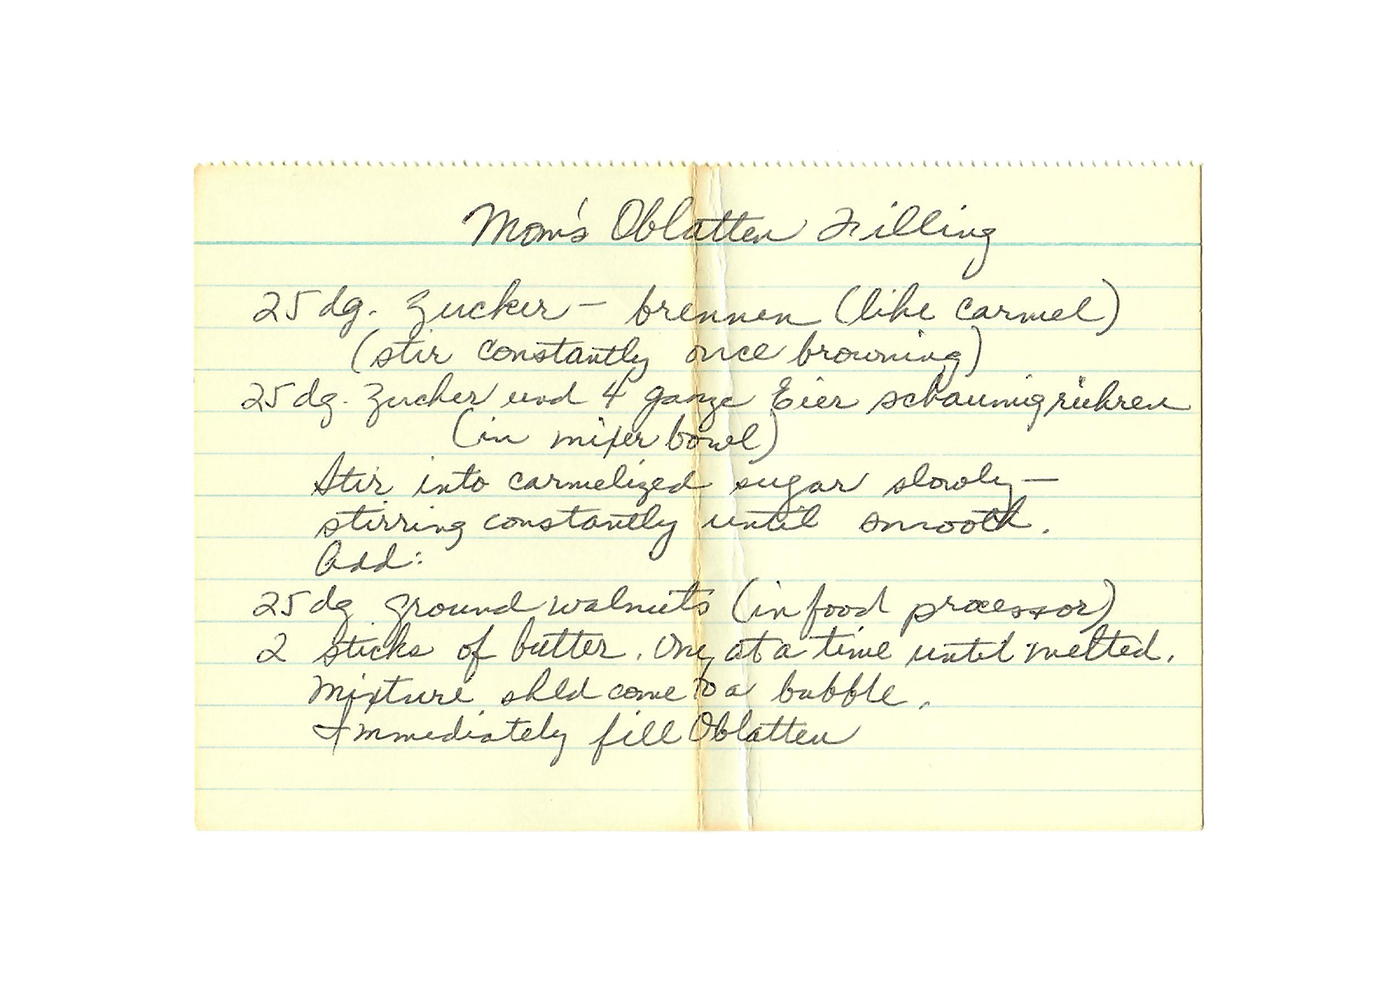 Mom's Oblatten Filling
25 dg. Zucker - brennen (like carmel)
(stir constantly once browning)
25 dg. Zucker und 4 ganze Eier schaumig rühren
(in mixer bowl)
Stir into carmelized sugar slowly -
stirring constantly until smooth.
Add:
25 dg ground walnuts (in food processor)
2 sticks of butter. One at a time until melted.
Mixture shld come to a bubble.
Immediately fill Oblatten